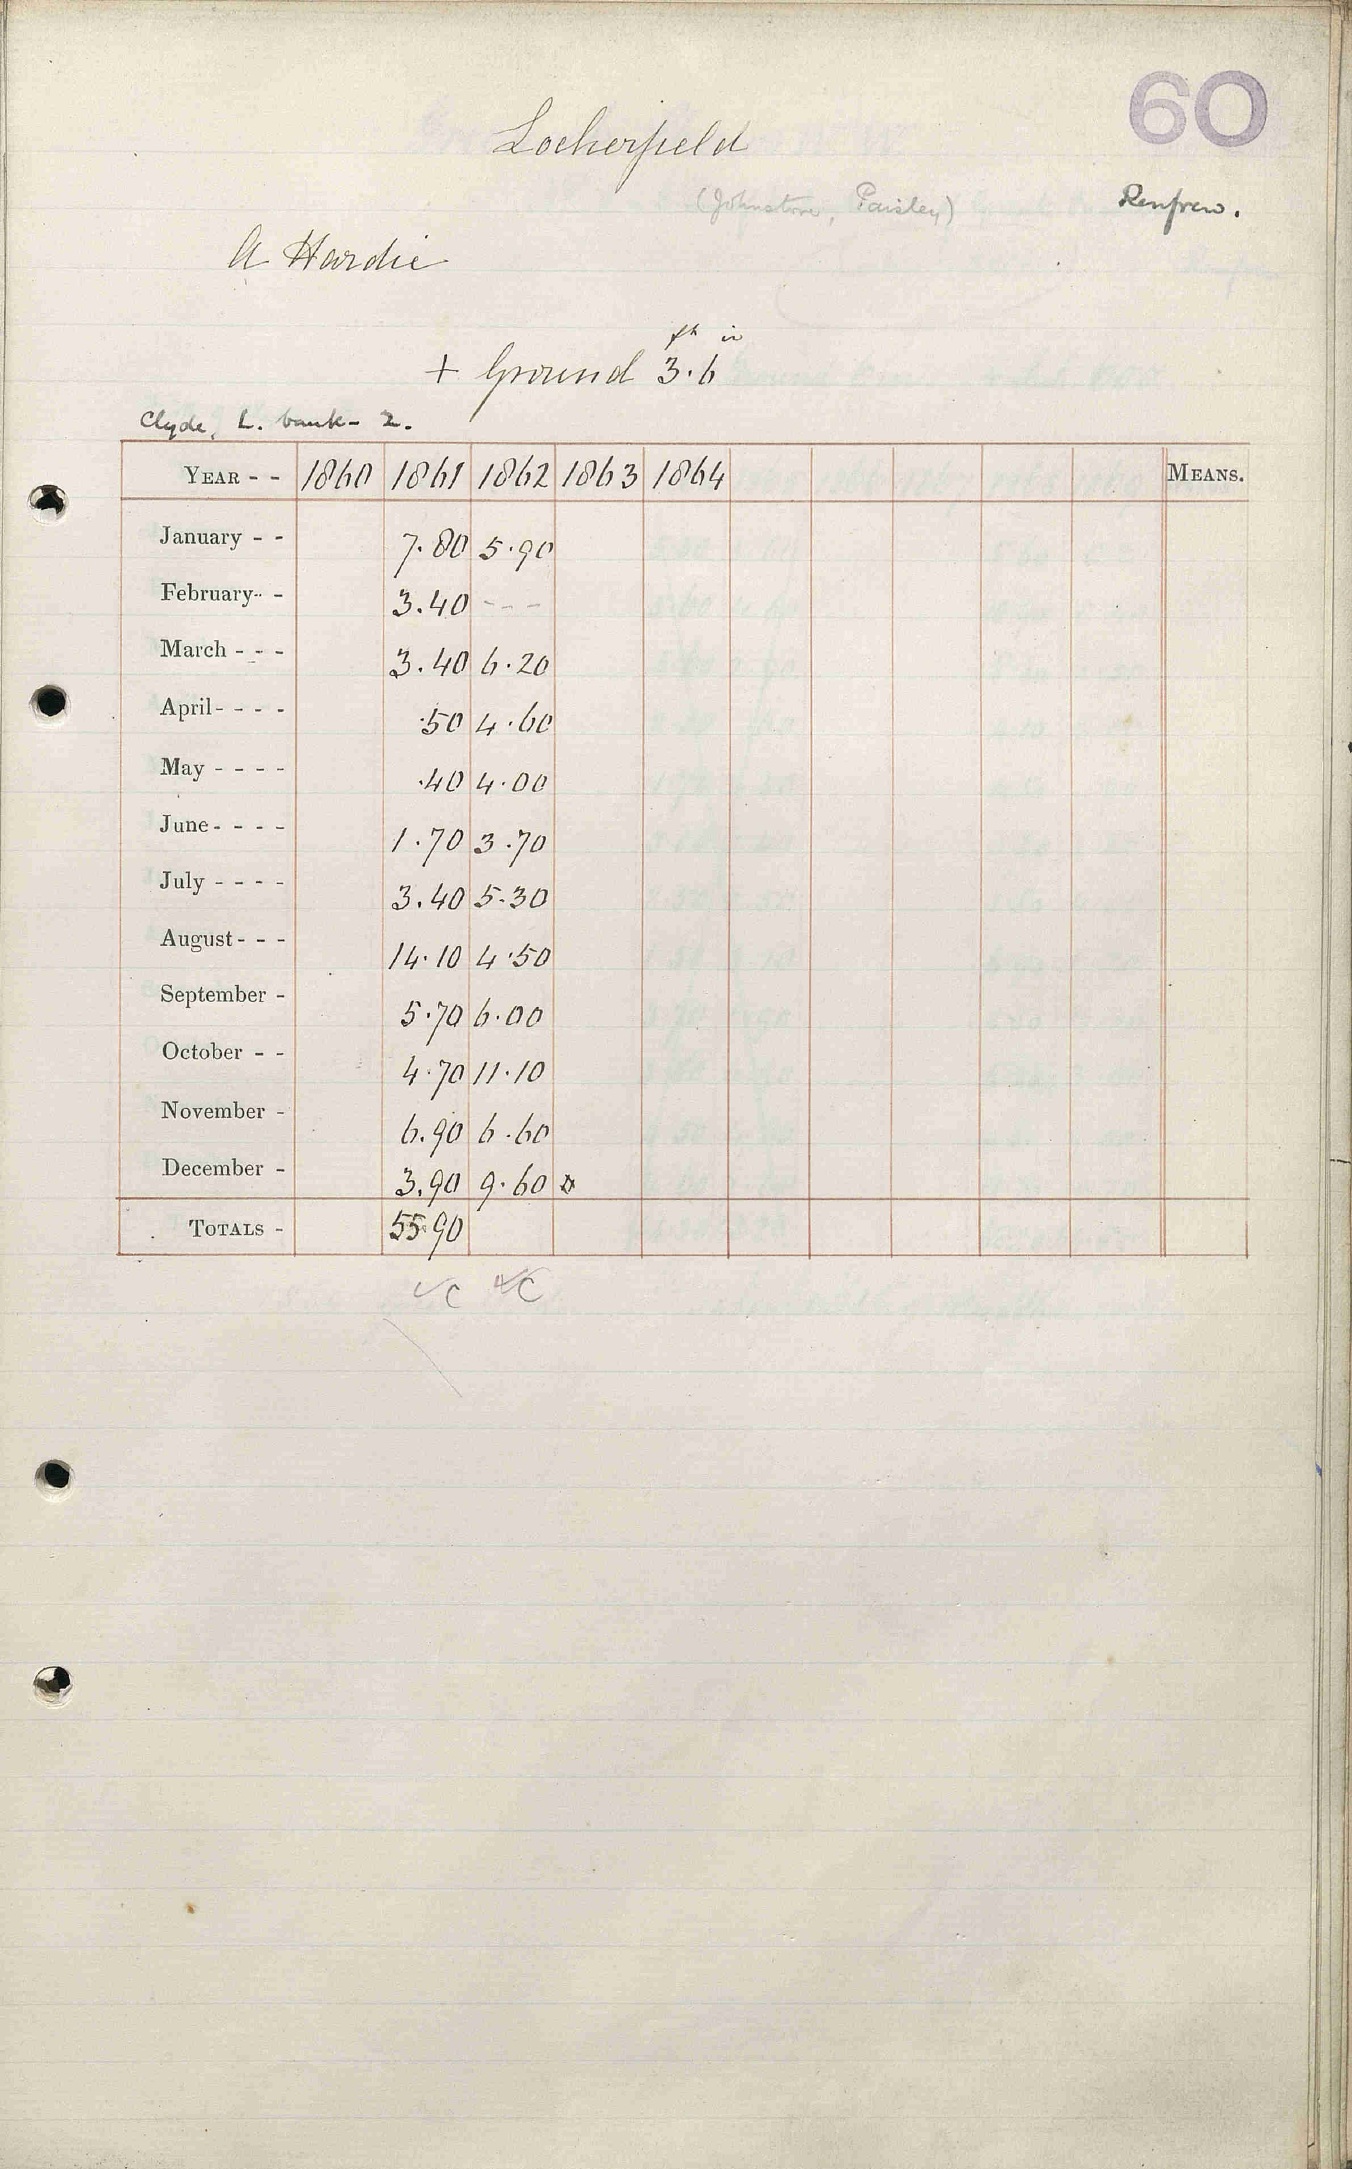 60
Locherfield
(Johnstone, Paisley) Renfrew.
A Hardie
ft in
+ Ground 3.6
Clyde, L. bank - 2.
YEAR - - 1860 1861 1862 1863 1864 MEANS.
January - - 7.80 5.90
February - - 3.40 - - -
March - - - 3.40 6.20
April - - - - .50 4.60
May - - - - .40 4.00
June - - - - 1.70 3.70
July - - - - 3.40 5.30
August - - - 14.10 4.50
September - 5.70 6.00
October - - 4.70 11.10
November - 6.90 6.60
December - 3.90 9.60
TOTALS - 55.90